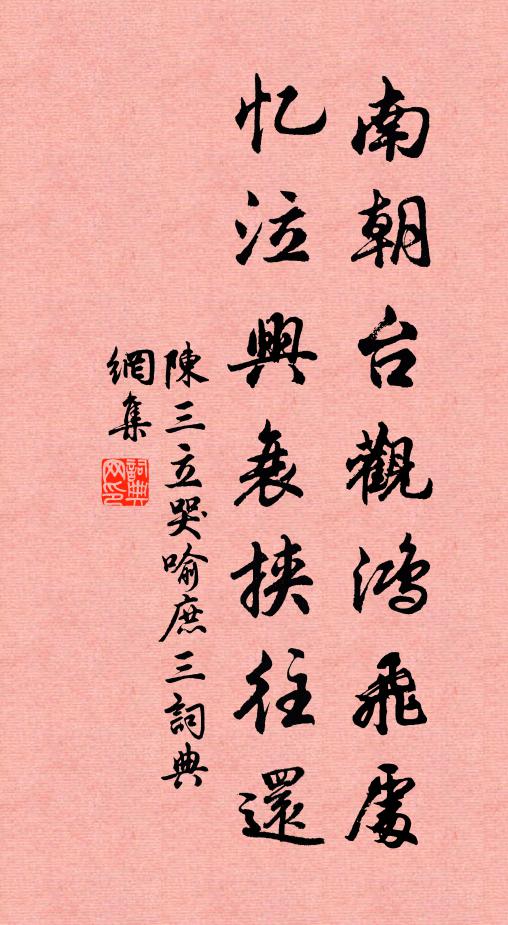 南朝台觀鴻飛處
忆泣興衰挾往還
陳三立哭喻庶三詞典
網集
詞典網印